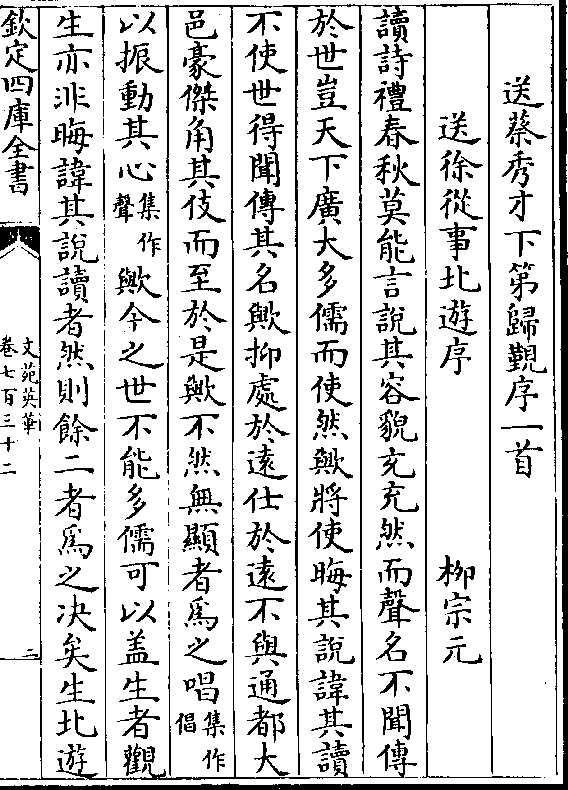 送蔡秀才下第歸覲序一首
送徐從事北遊序　柳宗元
讀詩禮春秋莫能言說其容貌充充然而聲名不聞傳
於世豈天下廣大多儒而使然歟將使晦其說諱其讀
不使世得聞傳其名歟抑處於遠仕於遠不與通都大
邑豪傑角其伎而至於是歟不然無顯者爲之唱集作倡
以振動其心集作聲歟今之世不能多儒可以盖生者觀
生亦非晦諱其說讀者然則餘二者爲之决矣生北遊
欽定四庫全書
文苑英華
卷七百三十二
三